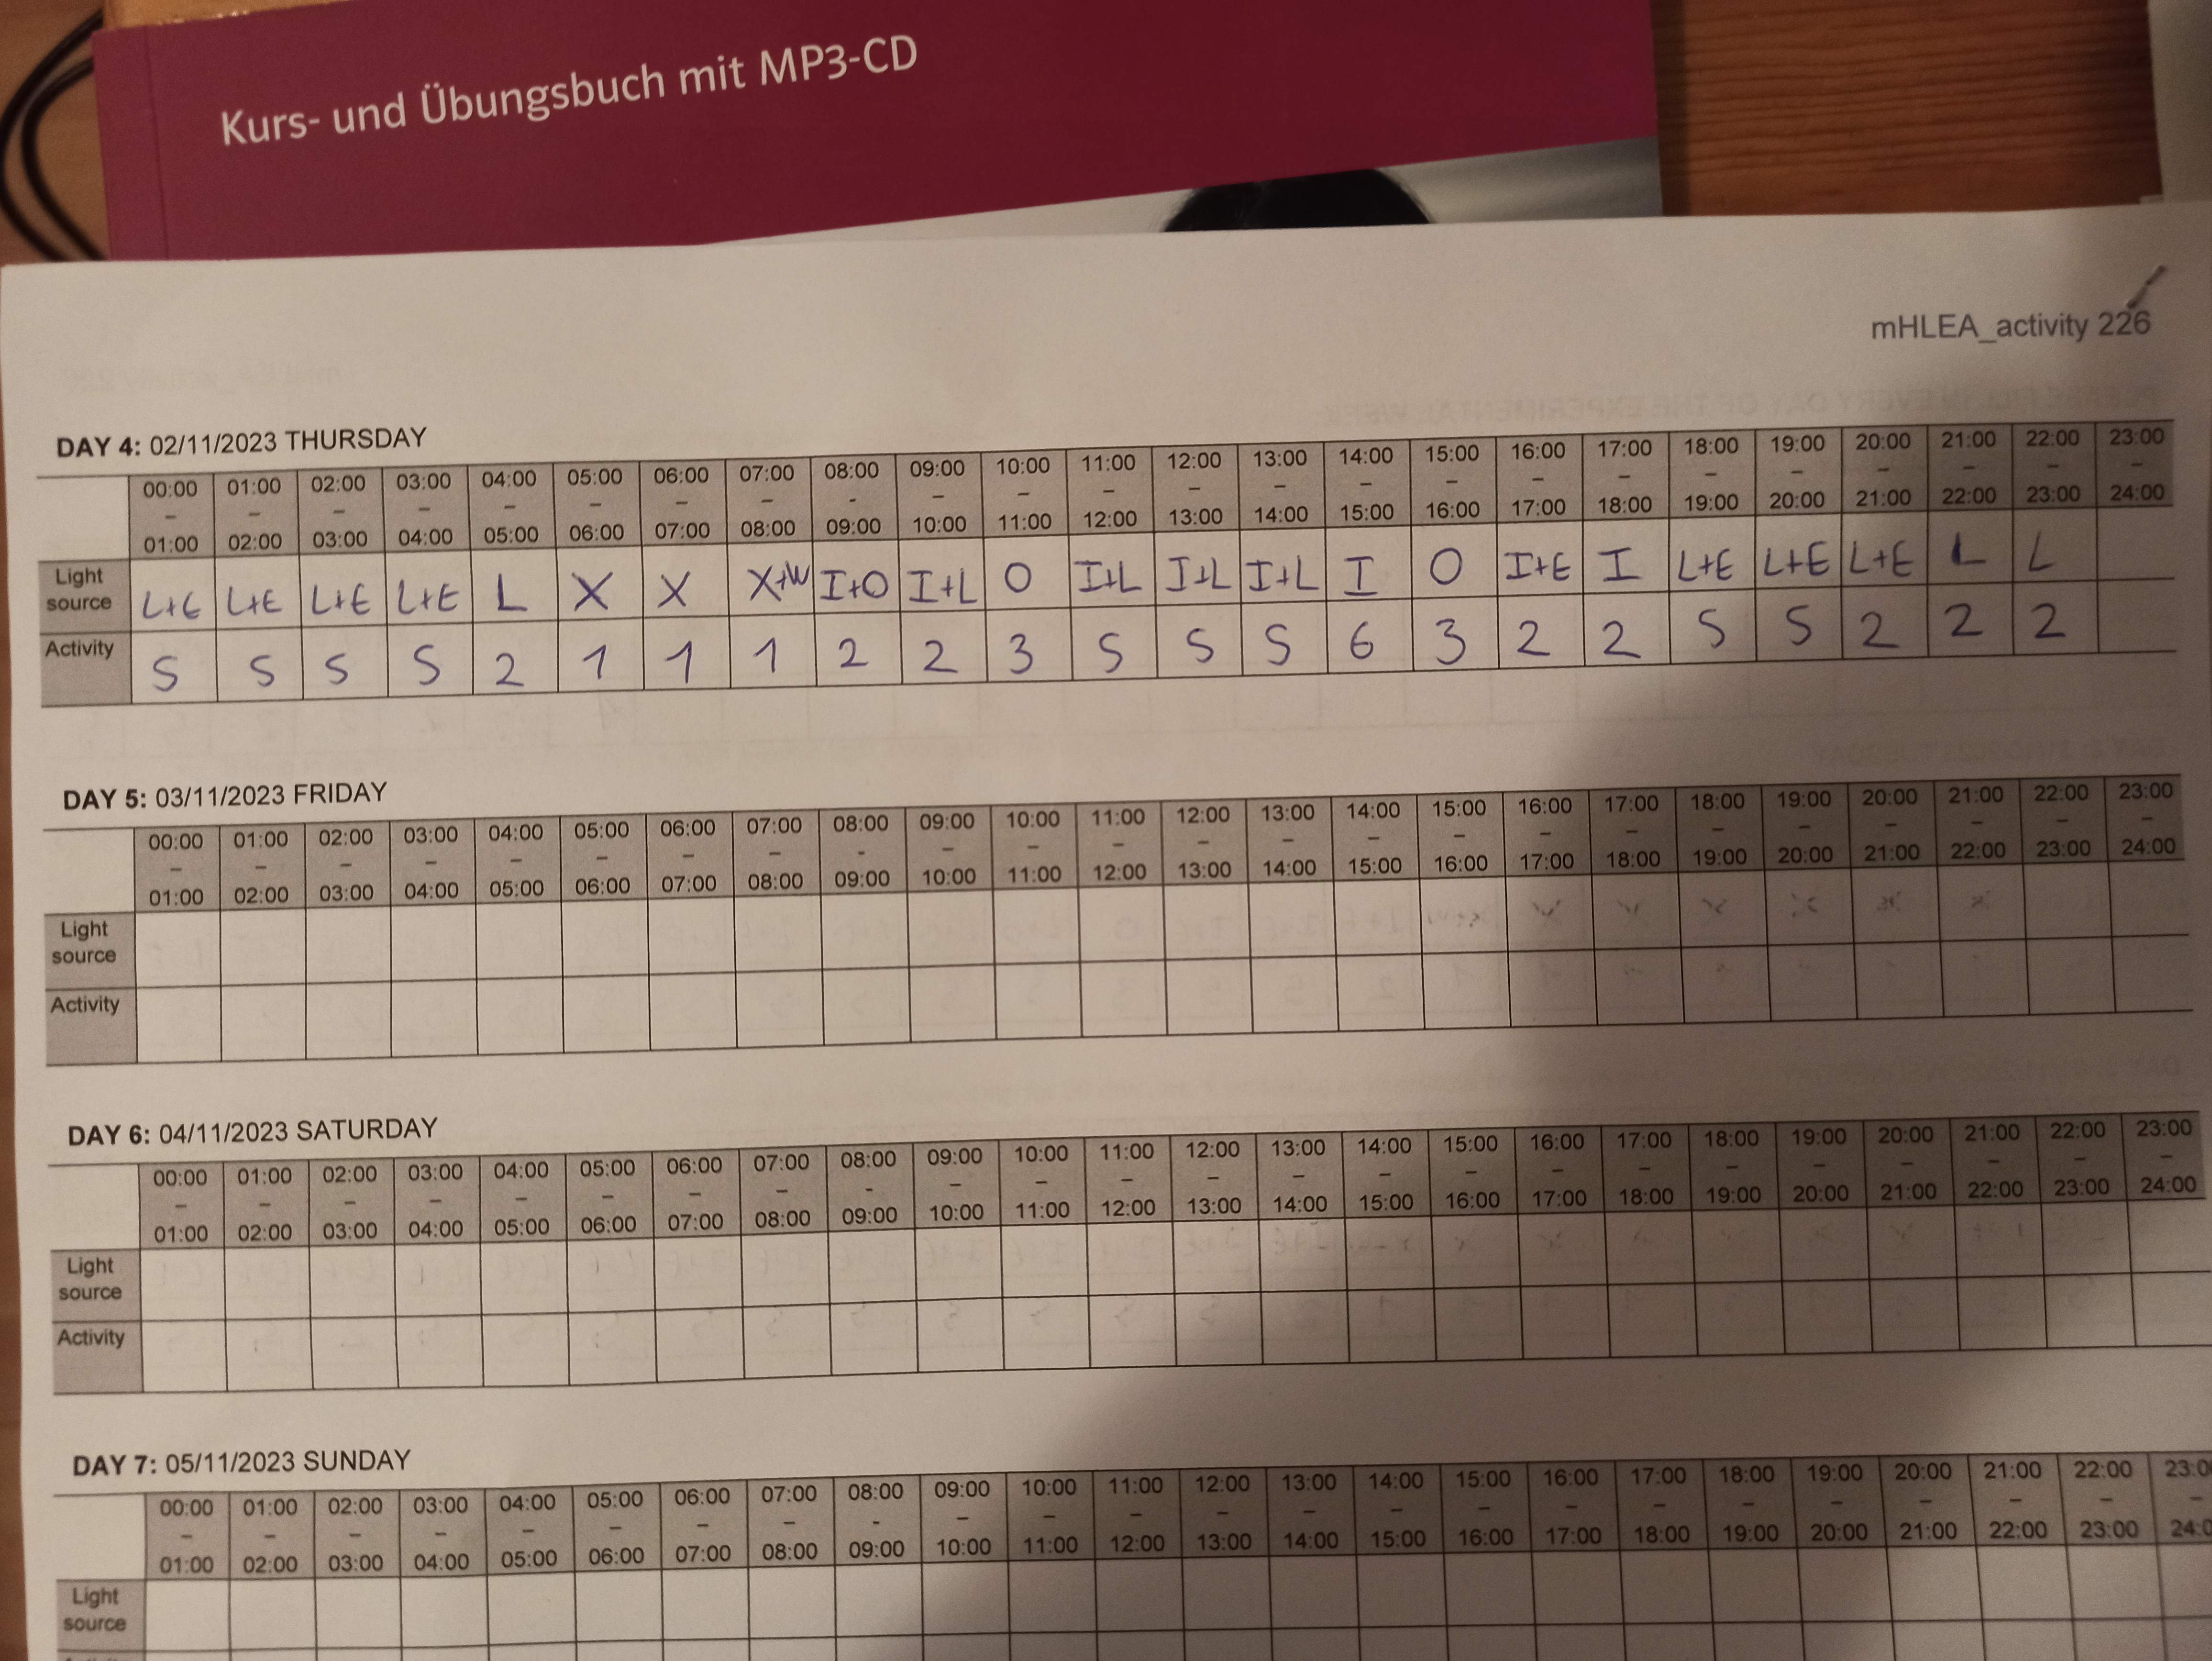 Kurs- und Übungsbuch mit MP3-CD
mHLEA_activity 226
DAY 4: 02/11/2023 THURSDAY
00:00 – 01:00 01:00 – 02:00 02:00 – 03:00 03:00 – 04:00 04:00 – 05:00 05:00 – 06:00 06:00 – 07:00 07:00 – 08:00 08:00 - 09:00 09:00 – 10:00 10:00 – 11:00 11:00 – 12:00 12:00 – 13:00 13:00 – 14:00 14:00 – 15:00 15:00 – 16:00 16:00 – 17:00 17:00 – 18:00 18:00 – 19:00 19:00 – 20:00 20:00 – 21:00 21:00 – 22:00 22:00 – 23:00 23:00 – 24:00
Light source L+E L+E L+E L+E L X X X+W I+O I+L O I+L I+L I+L I O I+E I L+E L+E L+E L L
Activity 5 5 5 5 2 1 1 1 2 2 3 5 5 5 6 3 2 2 5 5 2 2 2
DAY 5: 03/11/2023 FRIDAY
00:00 – 01:00 01:00 – 02:00 02:00 – 03:00 03:00 – 04:00 04:00 – 05:00 05:00 – 06:00 06:00 – 07:00 07:00 – 08:00 08:00 - 09:00 09:00 – 10:00 10:00 – 11:00 11:00 – 12:00 12:00 – 13:00 13:00 – 14:00 14:00 – 15:00 15:00 – 16:00 16:00 – 17:00 17:00 – 18:00 18:00 – 19:00 19:00 – 20:00 20:00 – 21:00 21:00 – 22:00 22:00 – 23:00 23:00 – 24:00
Light source
Activity
DAY 6: 04/11/2023 SATURDAY
00:00 – 01:00 01:00 – 02:00 02:00 – 03:00 03:00 – 04:00 04:00 – 05:00 05:00 – 06:00 06:00 – 07:00 07:00 – 08:00 08:00 - 09:00 09:00 – 10:00 10:00 – 11:00 11:00 – 12:00 12:00 – 13:00 13:00 – 14:00 14:00 – 15:00 15:00 – 16:00 16:00 – 17:00 17:00 – 18:00 18:00 – 19:00 19:00 – 20:00 20:00 – 21:00 21:00 – 22:00 22:00 – 23:00 23:00 – 24:00
Light source
Activity
DAY 7: 05/11/2023 SUNDAY
00:00 – 01:00 01:00 – 02:00 02:00 – 03:00 03:00 – 04:00 04:00 – 05:00 05:00 – 06:00 06:00 – 07:00 07:00 – 08:00 08:00 - 09:00 09:00 – 10:00 10:00 – 11:00 11:00 – 12:00 12:00 – 13:00 13:00 – 14:00 14:00 – 15:00 15:00 – 16:00 16:00 – 17:00 17:00 – 18:00 18:00 – 19:00 19:00 – 20:00 20:00 – 21:00 21:00 – 22:00 22:00 – 23:00 23:0 – 24:0
Light source